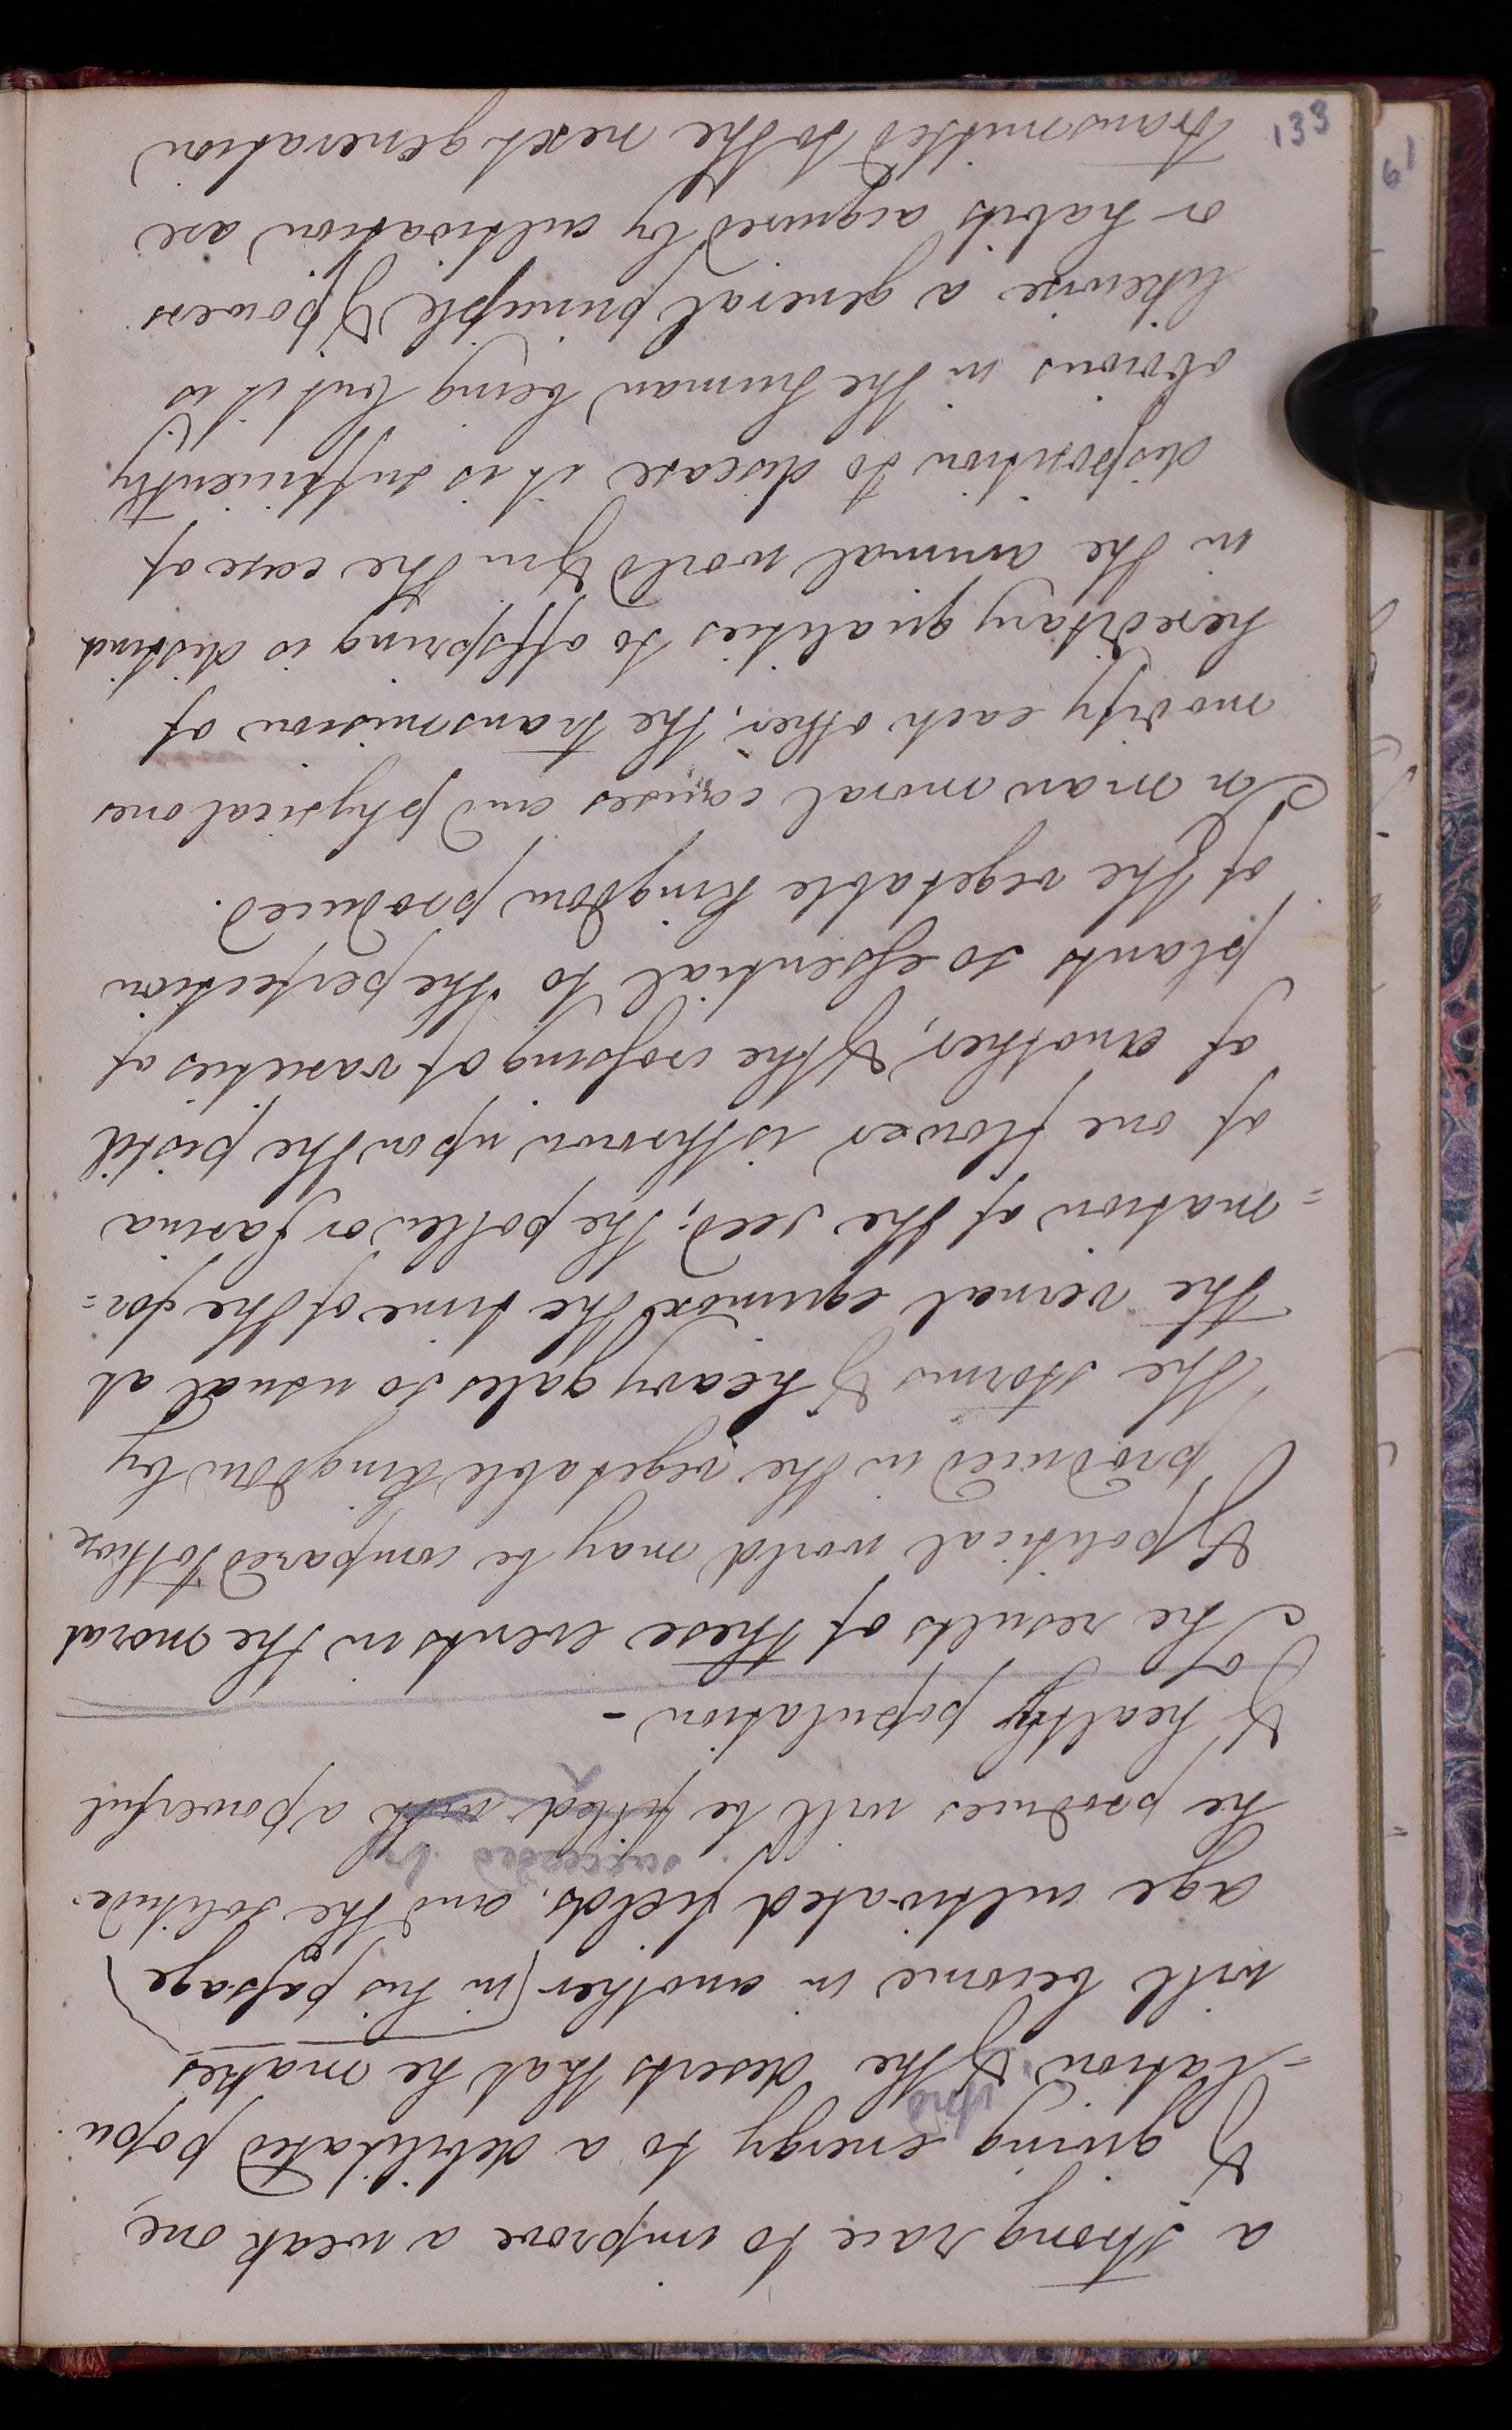 a strong race to improve a weak one,
& giving energy to a debilitated popu
and
=lation & the deserts that he makes
will become in another (in his passage)
age cultivated fields, and the solitude
succeeded by
he produces will be filled with a powerful
& healthy population -
The results of these events in the moral
& political world may be compared to those
produced in the vegetable kingdom by
the storms & heavy gales so usual at
the vernal equinox the time of the for=
=mation of the seed; the pollen or farina
of one flower is thrown upon the pistil
of another, & the crossing of varieties of
plants so essential to the perfection
of the vegetable kingdom produced.
In man moral causes and physical ones
modify each other; the transmission of
hereditary qualities to offspring is distinct
in the animal world & in the case of
disposition to disease it is sufficiently
obvious in the human being but it is
likewise a general principle & powers
or habits acquired by cultivation are
transmitted to the next generation
133
61